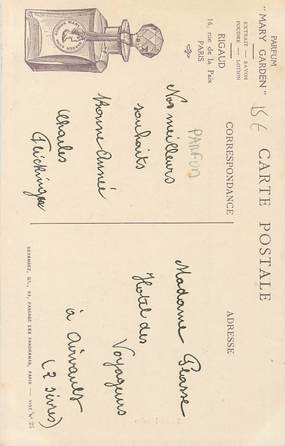 PARFUM
"MARY GARDEN"
EXTRAIT — SAVON
POUDRE — LOTION
RIGAUD
16, rue de la Paix
PARIS
15 €
CARTE POSTALE
CORRESPONDANCE
PARFUM
Nos meilleurs
souhaits
Bonne Année
Charles
ADRESSE
Madame
Hotel des
Voyageurs
à Airvault
(2 Sèvres)